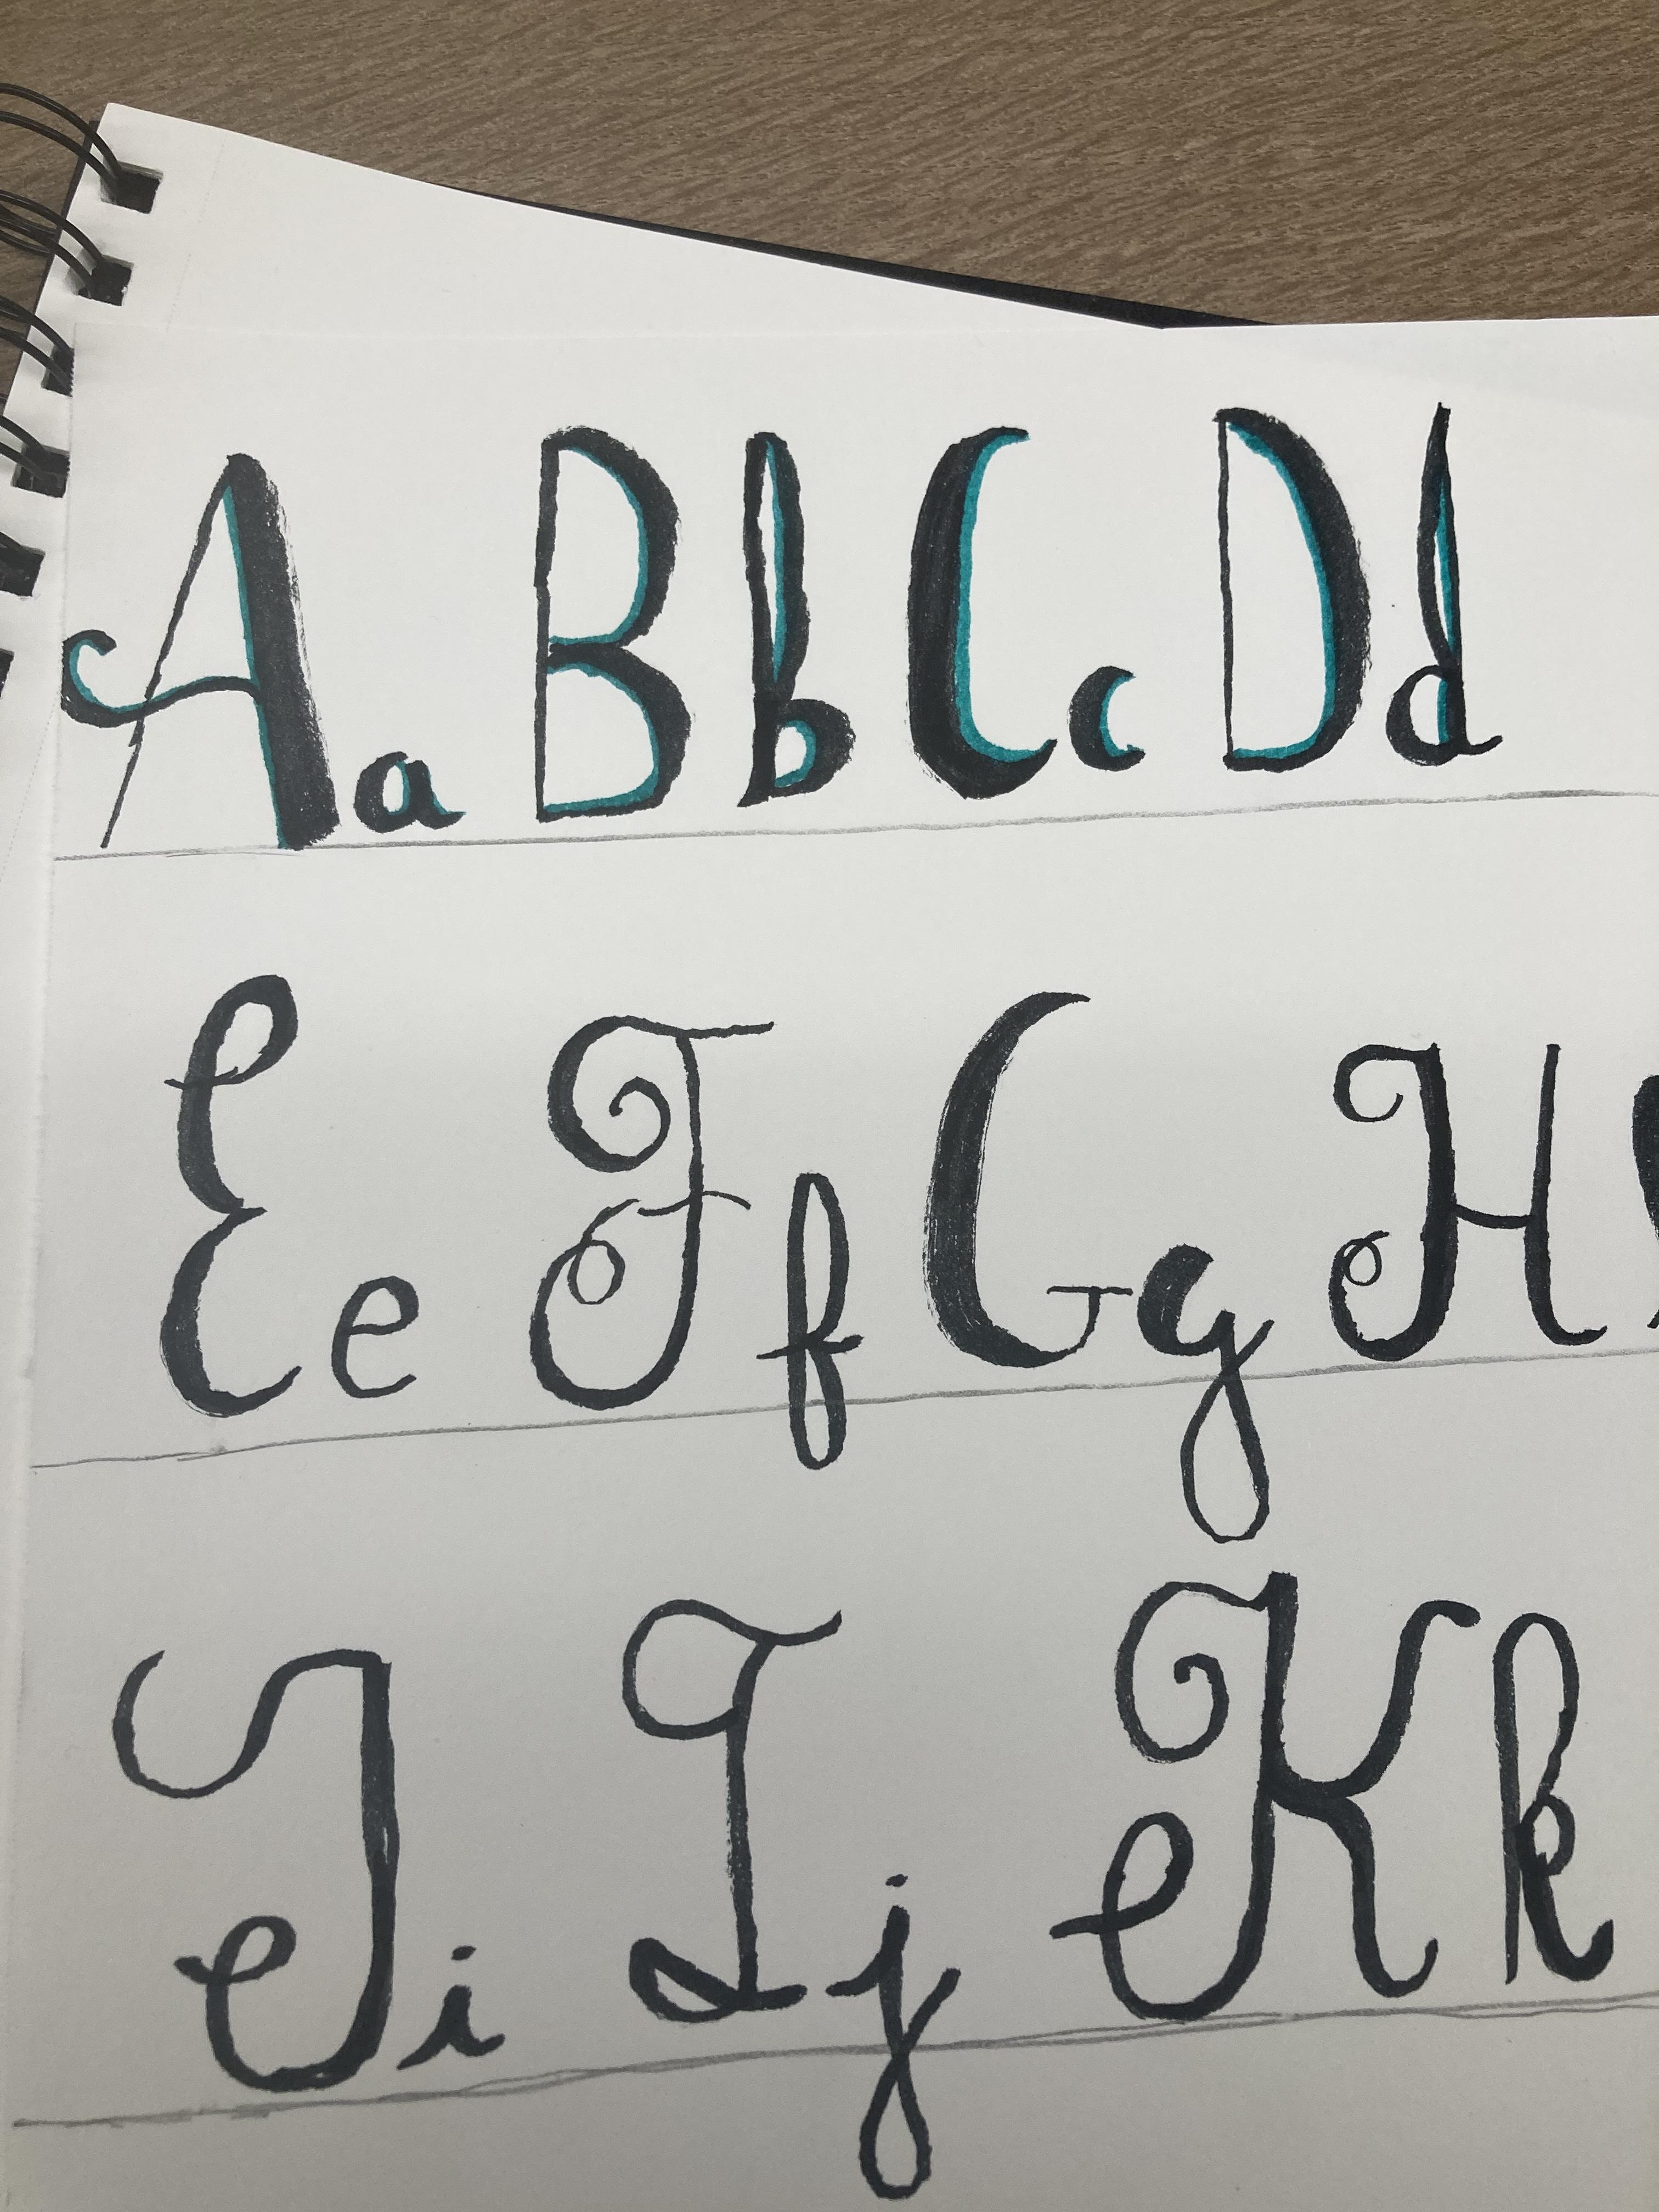 Aa Bb Cc Dd
Ee Ff Gg H
Ii Jj Kk